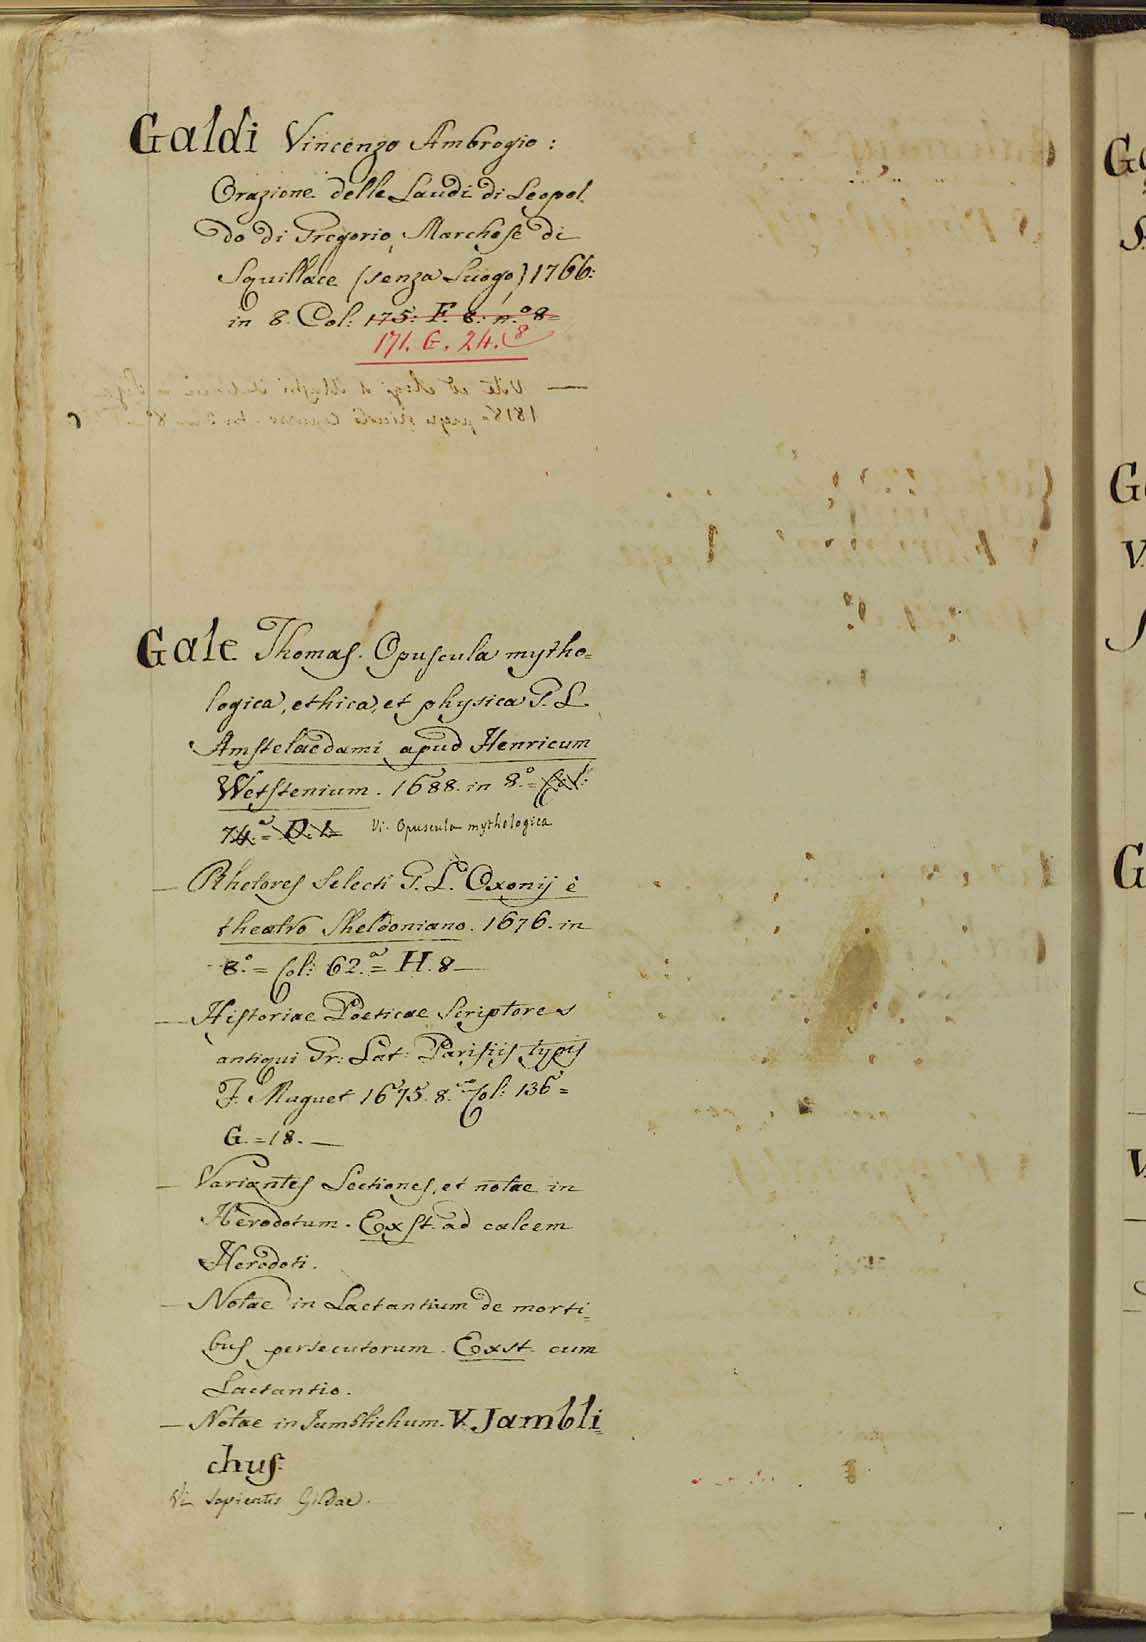 Galdi Vincenzo Ambrogio:
Orazione delle Laudi di Leopol
do di Gregorio, Marchese di
Squillace (senza Luogo) 1766:
in 8. Col: 175: F. 8: n.º 8=
171. G. 24. (8
Gale Thomas. Opuscula mytho=
logica, ethica, et physica G. L.
Amstelaedami apud Henricum
Wetstenium. 1688. in 8.º = Col:
74.ª = D. 1=
Vi. Opuscula mythologica
— Rhetores Selecti G. L. Oxonij è
theatro Sheldoniano. 1676. in
8.º = Col: 62.ª = H. 8 —
— Historiae Poeticae Scriptores
antiqui Gr: Lat: Parisijs typis
F. Muguet 1675. 8.vo Col: 136 =
G. = 18. —
— Variantes Lectiones, et notae in
Herodotum. Exst. ad calcem
Herodoti.
— Notae in Lactantium de morti=
bus persecutorum. Exst. cum
Lactantio.
— Notae in Jamblichum. V. Jambli=
chus.
Vi Sapientis Gildae.